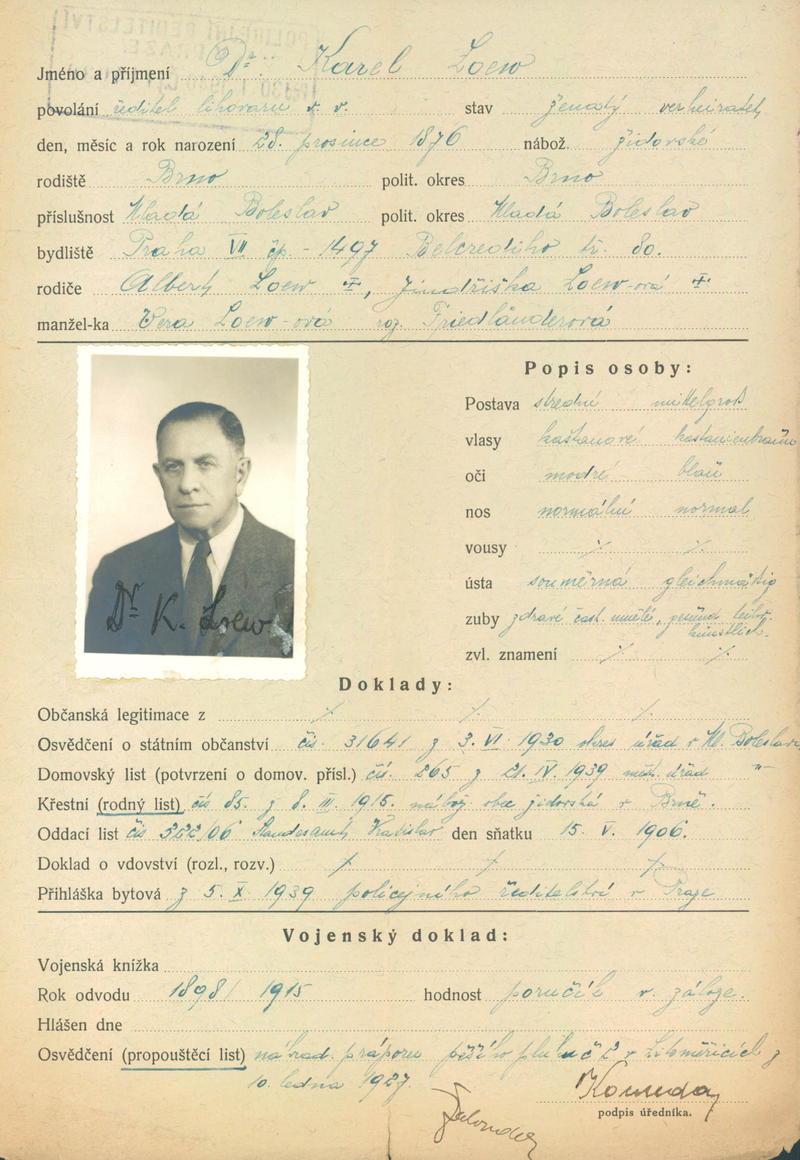 Jméno a příjmení Dr. Karel Loew
povolání ředitel lihovaru v. v. stav ženatý verheiratet
den, měsíc a rok narození 28. prosince 1876 nábož. židovské
rodiště Brno polit. okres Brno
příslušnost Mladá Boleslav polit. okres Mladá Boleslav
bydliště Praha VII čp. - 1497 Belcrediho tř. 80.
rodiče Albert Loew †, Jindřiška Loew-ová †
manžel-ka Vera Loew-ová roz. Friedländerová
Popis osoby:
Postava střední mittelgroß
vlasy kaštanové kastanienbraun
oči modré blau
nos normální normal
vousy ⁒ ⁒
ústa souměrná gleichmäßig
zuby zdravé část. umělé, gesund teilw. künstlich.
zvl. znamení ⁒ ⁒
Dr K. Loew
Doklady:
Občanská legitimace z ⁒ ⁒ ⁒
Osvědčení o státním občanství čís. 31641 z 3. VI. 1930 okres. úřad v Ml. Boleslavi
Domovský list (potvrzení o domov. přísl.) čís. 265 z 21. IV. 1939 měst. úřad -"-
Křestní (rodný list) čís 85. z 8. III. 1915. nábož. obec židovská v Brně.
Oddací list čís 322/06 Standesamt, Vratislav den sňatku 15. V. 1906.
Doklad o vdovství (rozl., rozv.) ⁒ ⁒ ⁒
Přihláška bytová z 5. X. 1939 policejního ředitelství v Praze
Vojenský doklad:
Vojenská knížka
Rok odvodu 1898/ 1915 hodnost poručík v. záloze.
Hlášen dne
Osvědčení (propouštěcí list) náhrad. práporu pěšího pluku v Litoměřicích z
10. ledna 1927.
podpis úředníka.